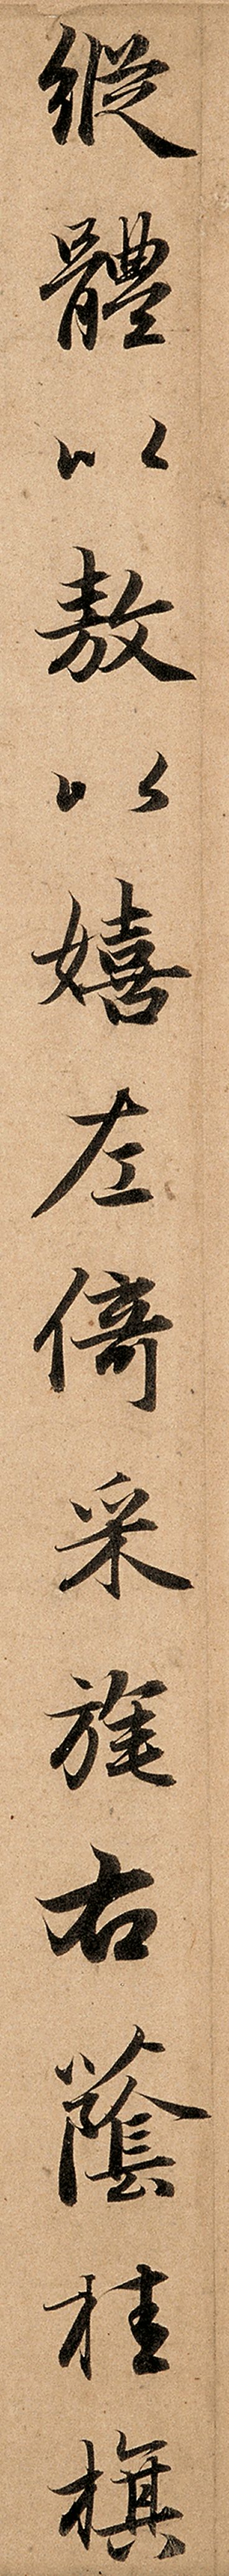 縱體以敖以嬉左倚采旄右蔭桂旗